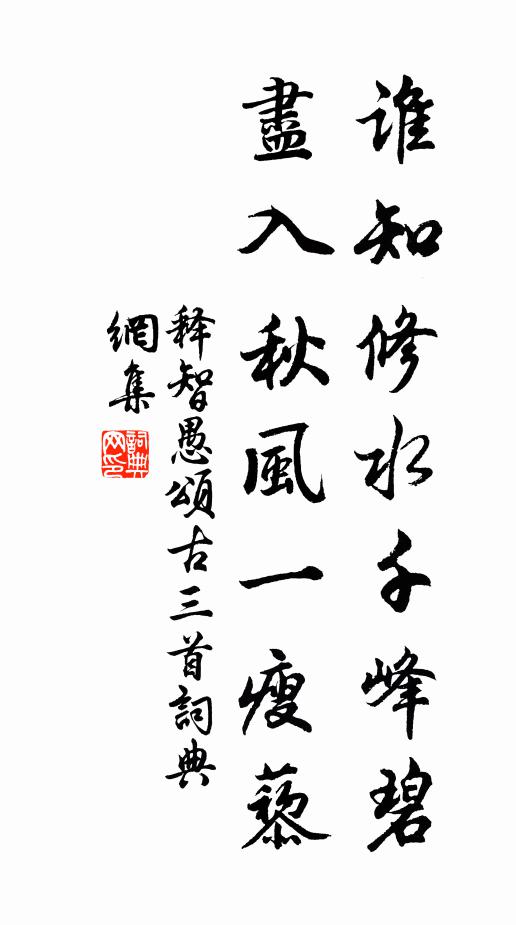 誰知修水千峰碧
盡入秋風一瘦藜
释智愚頌古三首詞典
網集
詞典
网印